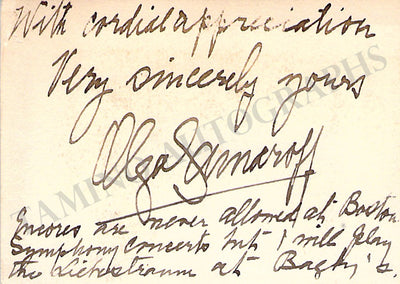 With cordial appreciation
Very sincerely yours
Olga Samaroff
Encores are never allowed at Boston
Symphony Concerts but I will play
the Liebestraum at Bagby's.
TAMINO AUTOGRAPHS